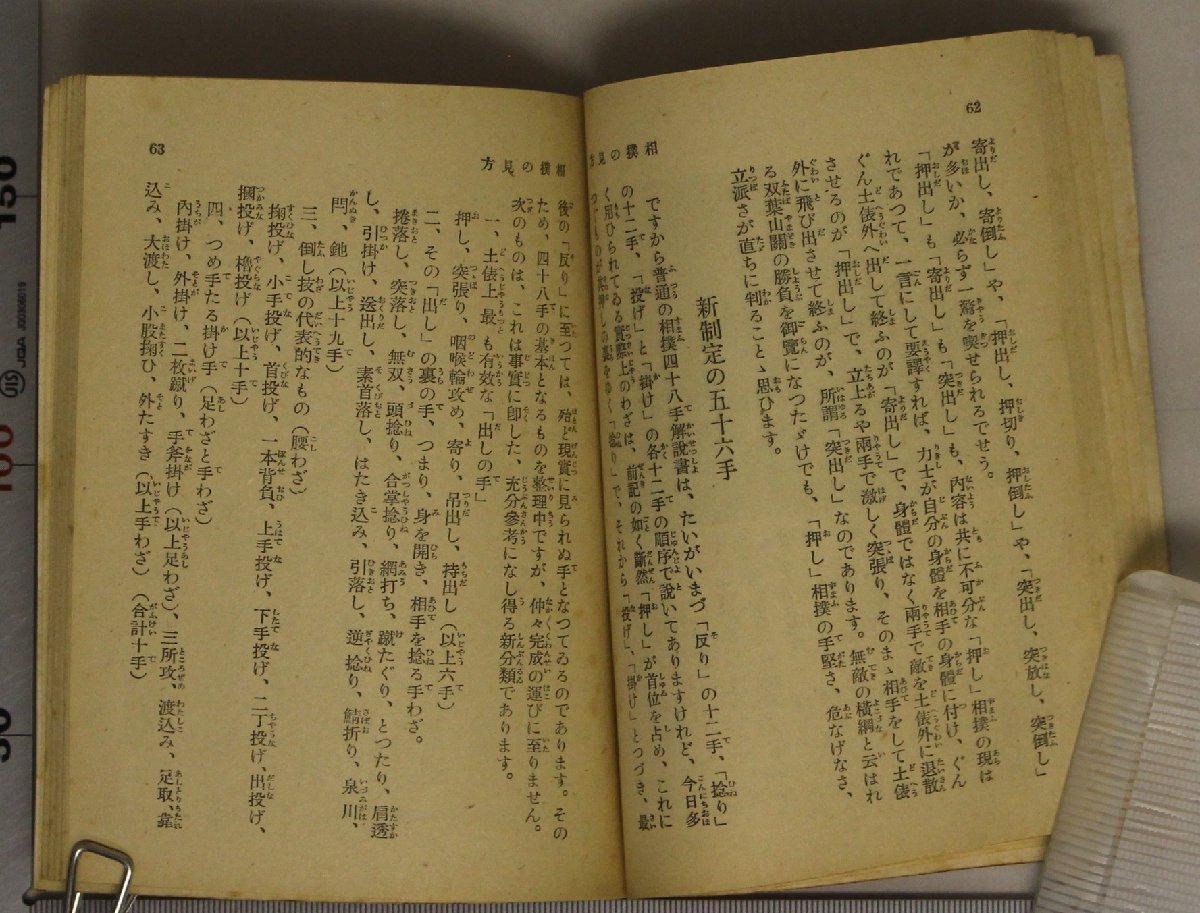 62
寄出し、寄倒し」や、「押出し、押切り、押倒し」や、「突出し、突放し、突倒し」
が多いか、必らず一驚を喫せられるでせう。
「押出し」も「寄出し」も「突出し」も、內容は共に不可分な「押し」相撲の現は
れであつて、一言にして要譯すれば、力士が自分の身體を相手の身體に付け、ぐん
ぐん土俵外へ出して終ふのが「寄出し」で、身體ではなく兩手で敵を土俵外に退散
させるのが「押出し」で、立上るや兩手で激しく突張り、そのまゝ相手をして土俵
外に飛び出させて終ふのが、所謂「突出し」なのであります。無敵の橫綱と云はれ
る双葉山關の勝負を御覽になつたゞけでも、「押し」相撲の手堅さ、危なげなさ、
立派さが直ちに判ることゝ思ひます。
新制定の五十六手
ですから普通の相撲四十八手解說書は、たいがいまづ「反り」の十二手、「捻り」
の十二手、「投げ」と「掛け」の各十二手の順序で說いてありますけれど、今日多
く用ひられてゐる實際上のわざは、前記の如く斷然「押し」が首位を占め、これに
をゆく「捻り」で、それから「投げ」、「掛け」とつづき、最
相撲の見方
63
相撲の見方
後の「反り」に至つては、殆ど現實に見られぬ手となつてゐるのであります。その
ため、四十八手の基本となるものを整理中ですが、仲々完成の運びに至りません。
次のものは、これは事實に卽した、充分參考になし得る新分類であります。
一、土俵上最も有效な「出しの手」
押し、突張り、咽喉輪攻め、寄り、吊出し、持出し（以上六手）
二、その「出し」の裏の手、つまり、身を開き、相手を捻る手わざ。
捲落し、突落し、無双、頭捻り、合掌捻り、網打ち、蹴たぐり、とつたり、肩透
し、引掛け、送出し、素首落し、はたき込み、引落し、逆捻り、鯖折り、泉川、
閂、鉈（以上十九手）
三、倒し技の代表的なもの（腰わざ）
掬投げ、小手投げ、首投げ、一本背負、上手投げ、下手投げ、二丁投げ、出投げ、
摑投げ、櫓投げ（以上十手）
四、つめ手たる掛け手（足わざと手わざ）
內掛け、外掛け、二枚蹴り、手斧掛け（以上足わざ）、三所攻、渡込み、足取、靠
込み、大渡し、小股掬ひ、外たすき（以上手わざ）（合計十手）
150
100
50
JIS
JQA JQ0306019